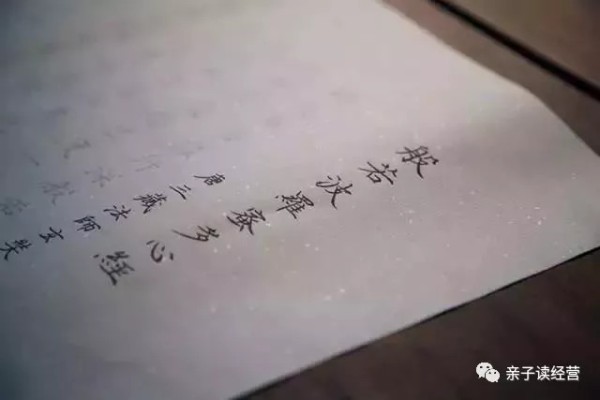 般若波羅蜜多心經
唐三藏法師玄奘
亲子读经营